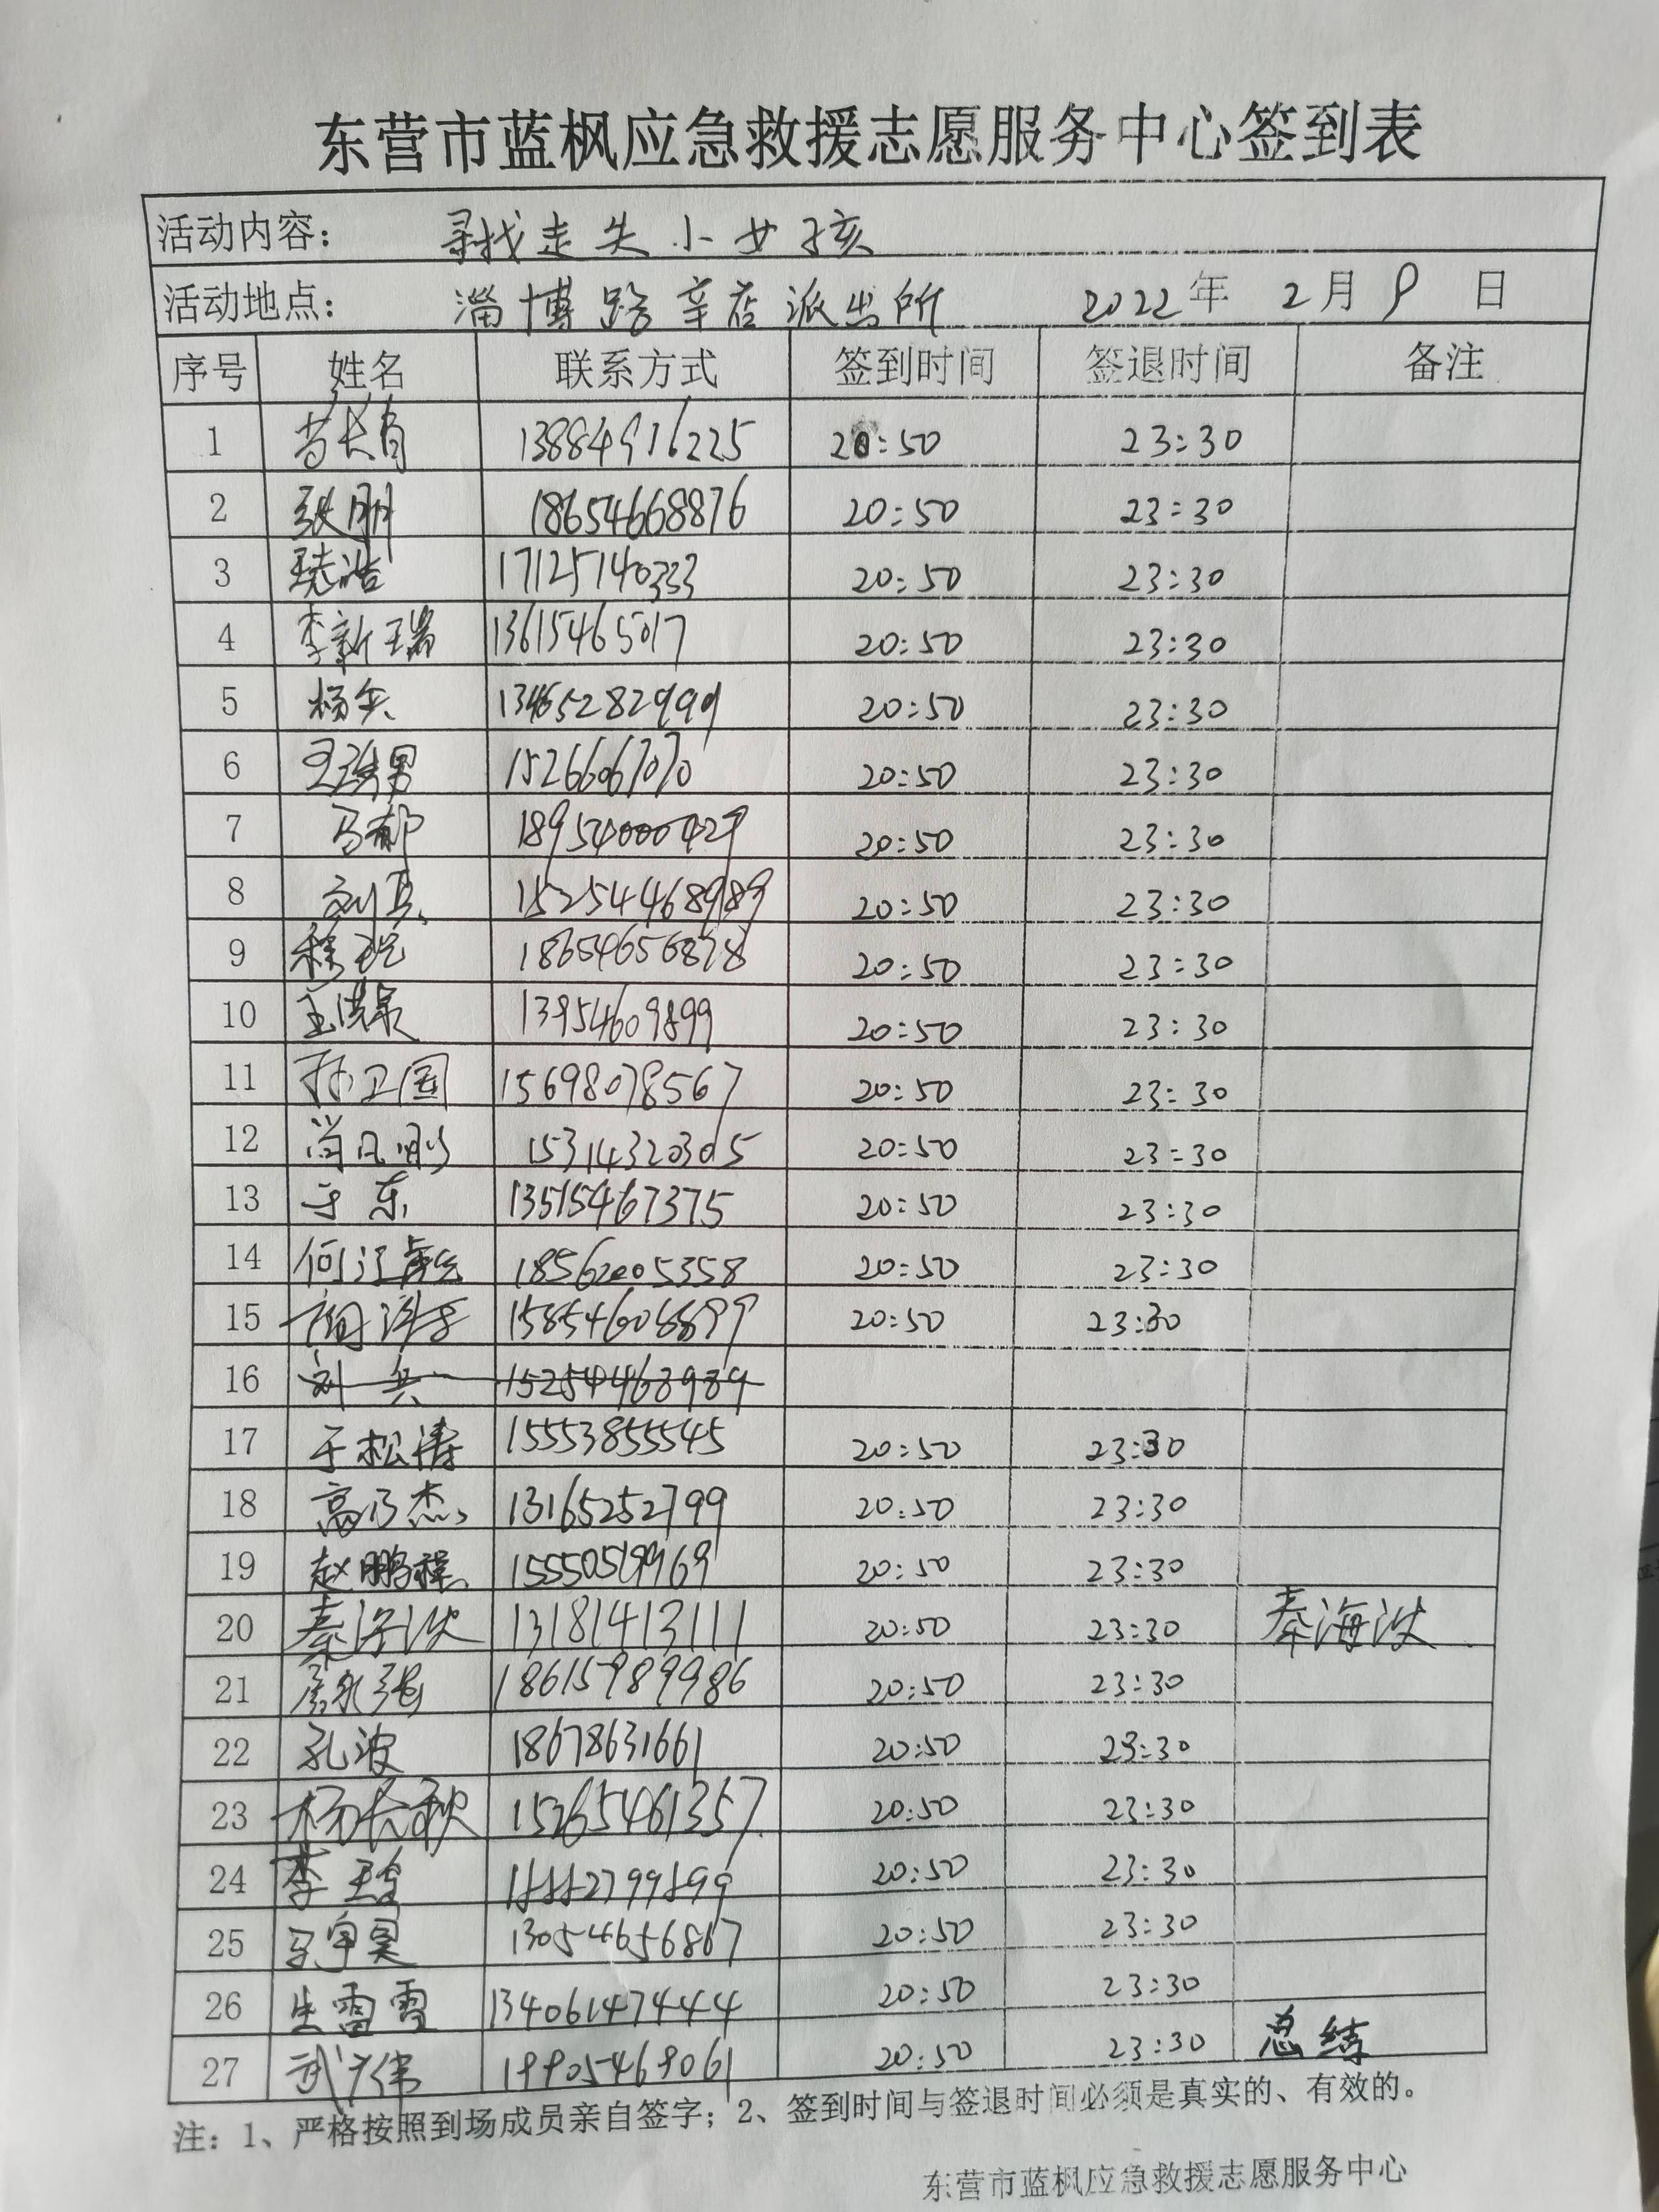 东营市蓝枫应急救援志愿服务中心签到表
活动内容： 寻找走失小女孩
活动地点： 淄博路辛店派出所 2022年 2月 9 日
序号 姓名 联系方式 签到时间 签退时间 备注
1 13884916225 20:50 23:30
2 张朋 18654668876 20:50 23:30
3 17125140333 20:50 23:30
4 李新瑞 13615465017 20:50 23:30
5 13465282999 20:50 23:30
6 15266067070 20:50 23:30
7 马郁 18954000429 20:50 23:30
8 刘兵 15254468989 20:50 23:30
9 18654656878 20:50 23:30
10 王洪泉 13954609899 20:50 23:30
11 孙卫国 15698078567 20:50 23:30
12 尚凡刚 15314320305 20:50 23:30
13 于东 13515467375 20:50 23:30
14 18562005358 20:50 23:30
15 15854606899 20:50 23:30
16 刘兵 15254468989
17 于松涛 15553855545 20:50 23:30
18 高乃杰 13165252799 20:50 23:30
19 赵鹏程 15550519969 20:50 23:30
20 秦海波 13181413111 20:50 23:30 秦海波
21 18615989986 20:50 23:30
22 孔波 18678631661 20:50 23:30
23 杨长秋 15365461357 20:50 23:30
24 20:50 23:30
25 13054656867 20:50 23:30
26 生雷雷 13406147444 20:50 23:30
27 武广伟 19905469061 20:50 23:30 总练
注：1、严格按照到场成员亲自签字；2、签到时间与签退时间必须是真实的、有效的。
东营市蓝枫应急救援志愿服务中心